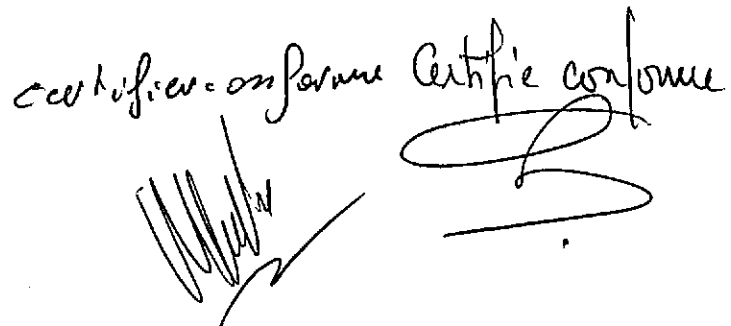 certifier conforme Certifie conforme